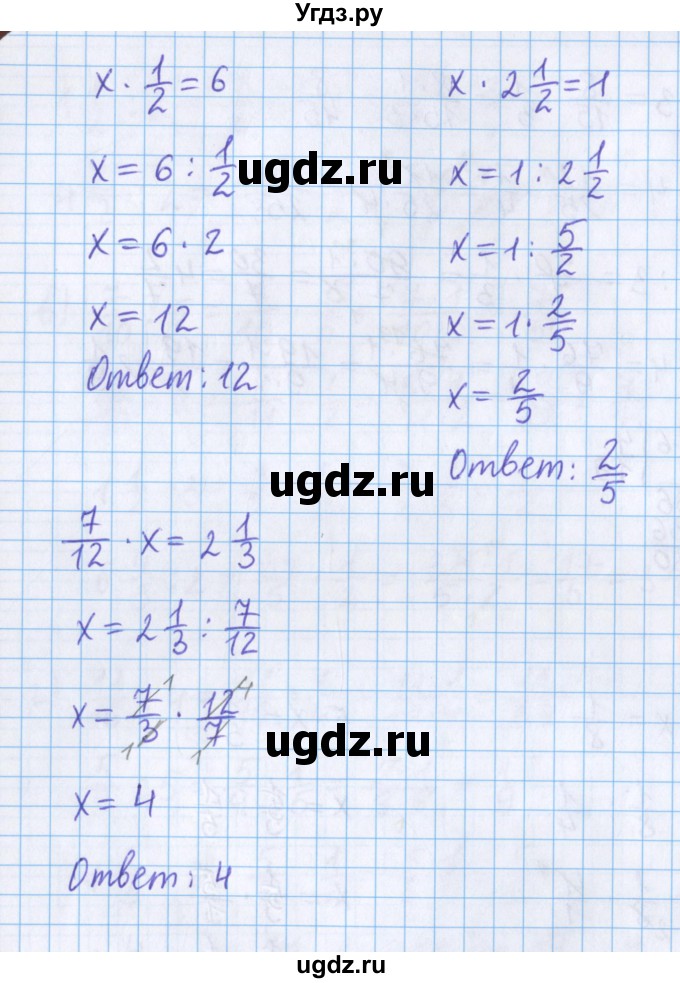 Угдз.ру
x · 1/2 = 6
x = 6 : 1/2
x = 6 · 2
x = 12
Ответ: 12
x · 2 1/2 = 1
x = 1 : 2 1/2
x = 1 : 5/2
x = 1 · 2/5
x = 2/5
Ответ: 2/5
ugdz.ru
ugdz.ru
7/12 · x = 2 1/3
x = 2 1/3 : 7/12
x = 7/3 · 12/7
1 4
1 1
x = 4
Ответ: 4
ugdz.ru
ugdz.ru